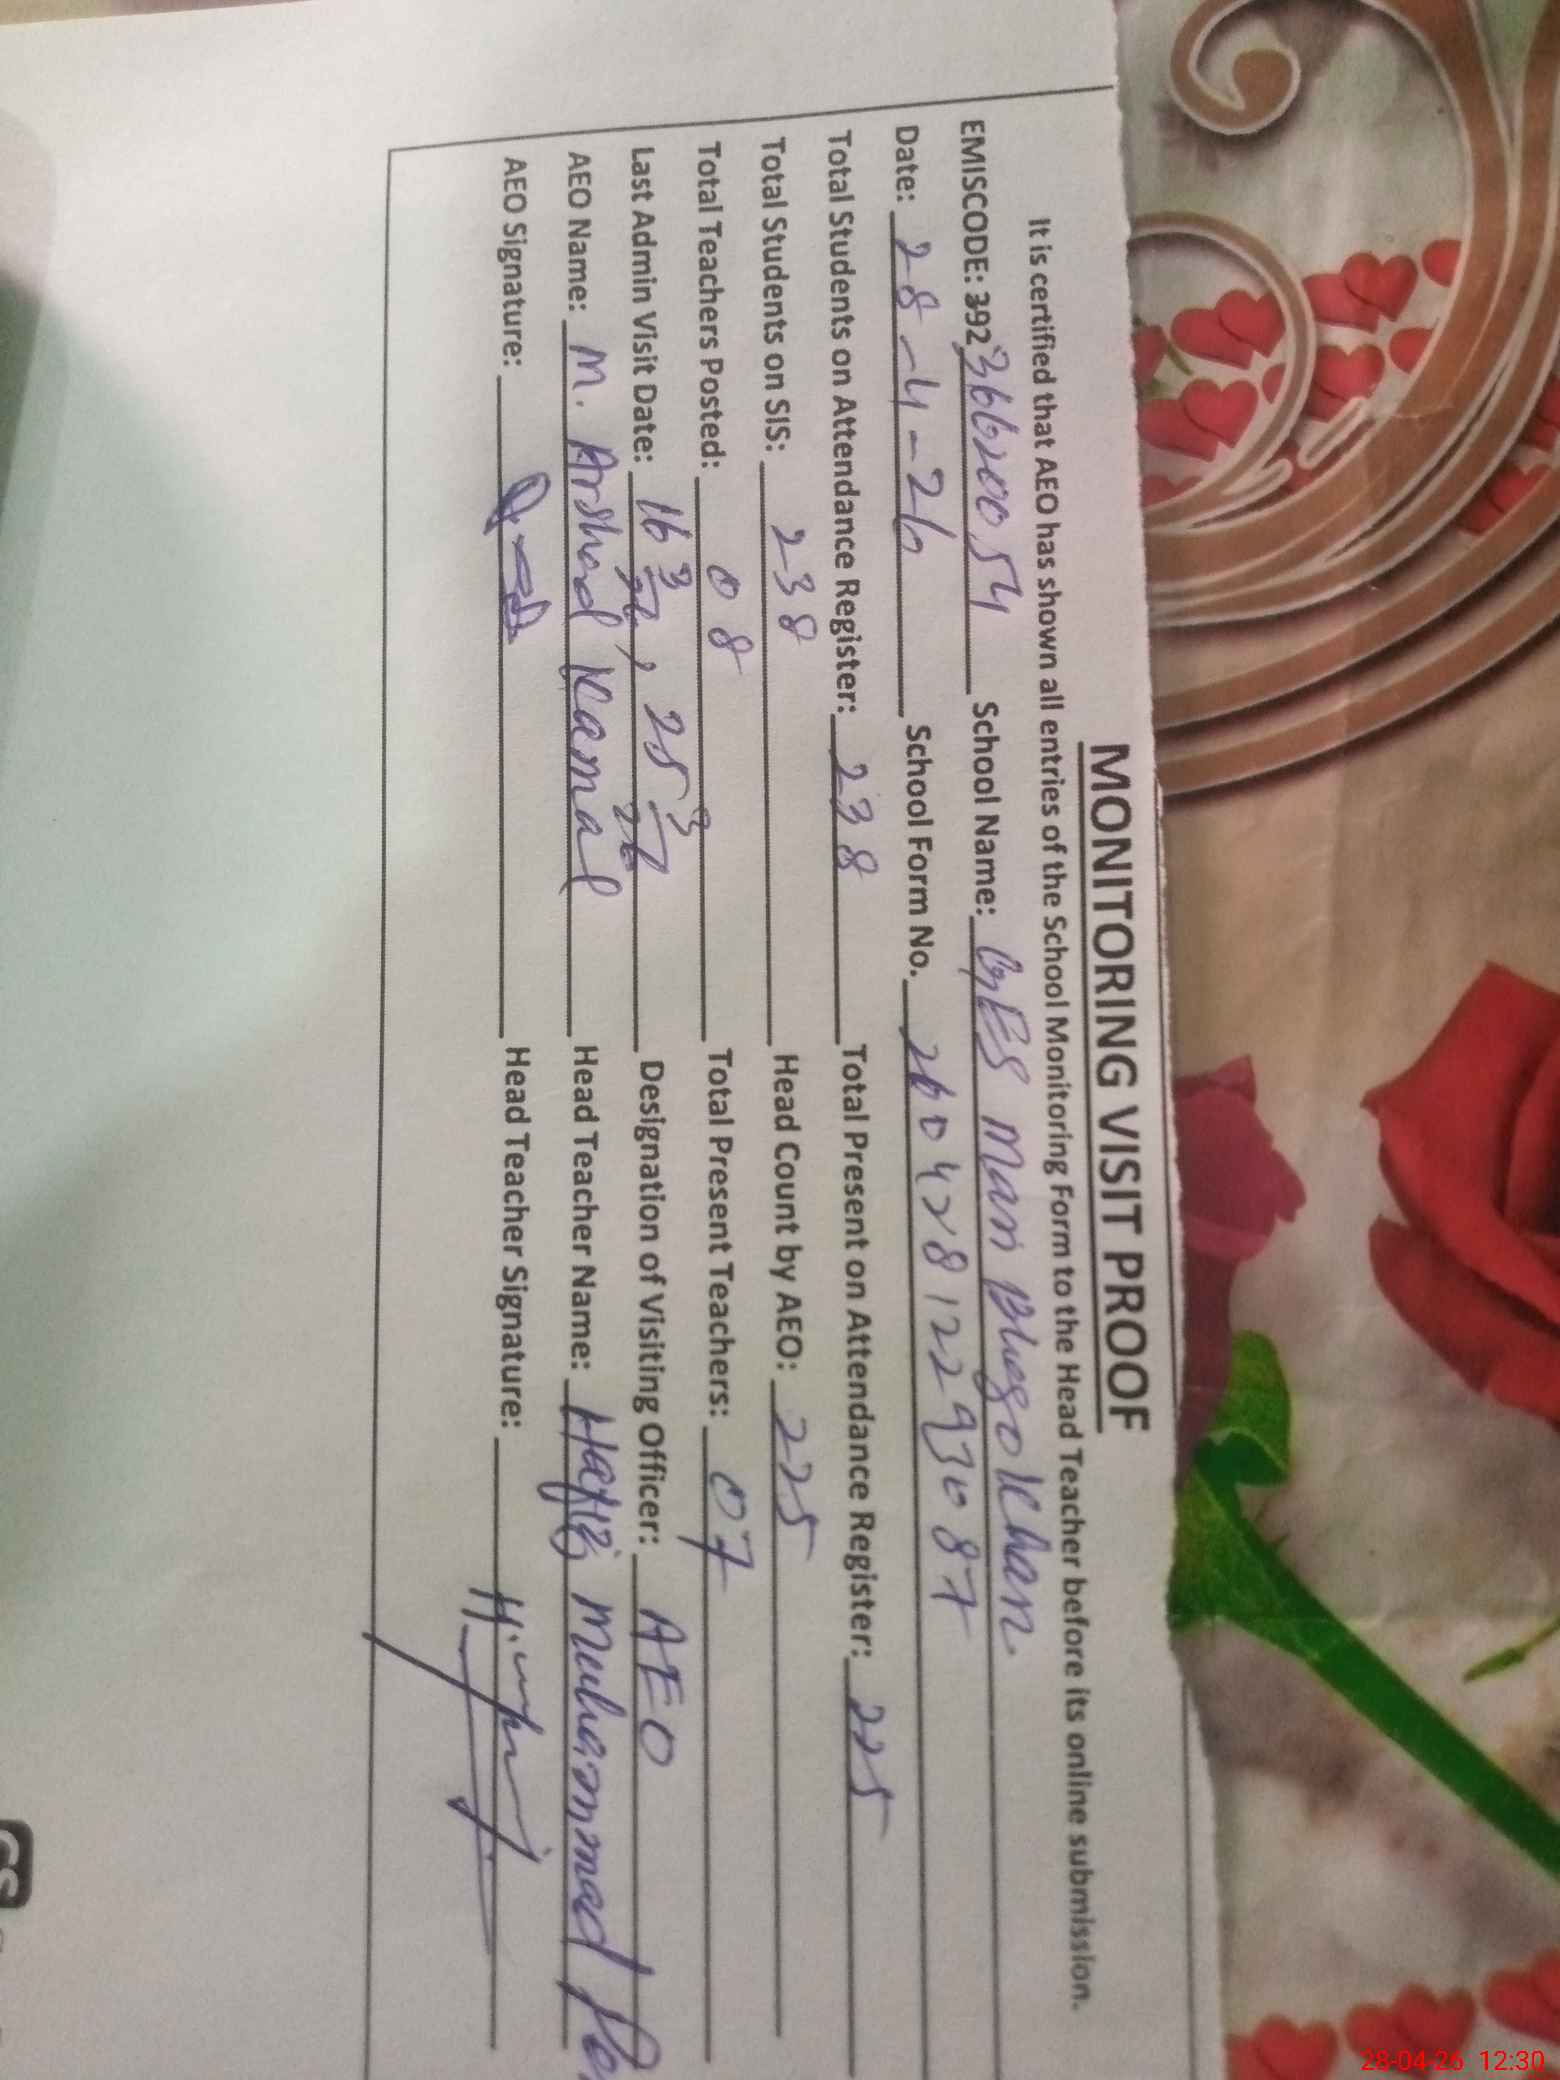 MONITORING VISIT PROOF
It is certified that AEO has shown all entries of the School Monitoring Form to the Head Teacher before its online submission.
EMISCODE: 392 36620054 School Name: GES Mari Bhago Khan.
Date: 28-4-26 School Form No. 26042812293087
Total Students on Attendance Register: 238 Total Present on Attendance Register: 225
Total Students on SIS: 238 Head Count by AEO: 225
Total Teachers Posted: 08 Total Present Teachers: 07
Last Admin Visit Date: 16 3/26, 25 3/26 Designation of Visiting Officer: AEO
AEO Name: M. Arshad Kamal Head Teacher Name: Hafiz Muhammad
AEO Signature: Head Teacher Signature:
28-04-26 12:30